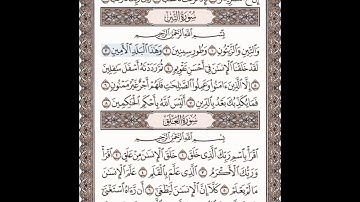 سُورَةُ التِّينِ
بِسْمِ اللَّهِ الرَّحْمَٰنِ الرَّحِيمِ
وَالتِّينِ وَالزَّيْتُونِ ۝١ وَطُورِ سِينِينَ ۝٢ وَهَٰذَا الْبَلَدِ الْأَمِينِ ۝٣
لَقَدْ خَلَقْنَا الْإِنسَٰنَ فِي أَحْسَنِ تَقْوِيمٍ ۝٤ ثُمَّ رَدَدْنَٰهُ أَسْفَلَ سَٰفِلِينَ
۝٥ إِلَّا الَّذِينَ ءَامَنُوا وَعَمِلُوا الصَّٰلِحَٰتِ فَلَهُمْ أَجْرٌ غَيْرُ مَمْنُونٍ ۝٦
فَمَا يُكَذِّبُكَ بَعْدُ بِالدِّينِ ۝٧ أَلَيْسَ اللَّهُ بِأَحْكَمِ الْحَٰكِمِينَ ۝٨
سُورَةُ الْعَلَقِ
بِسْمِ اللَّهِ الرَّحْمَٰنِ الرَّحِيمِ
اقْرَأْ بِاسْمِ رَبِّكَ الَّذِي خَلَقَ ۝١ خَلَقَ الْإِنسَٰنَ مِنْ عَلَقٍ ۝٢ اقْرَأْ
وَرَبُّكَ الْأَكْرَمُ ۝٣ الَّذِي عَلَّمَ بِالْقَلَمِ ۝٤ عَلَّمَ الْإِنسَٰنَ
مَا لَمْ يَعْلَمْ ۝٥ كَلَّا إِنَّ الْإِنسَٰنَ لَيَطْغَىٰ ۝٦ أَن رَّءَاهُ اسْتَغْنَىٰ